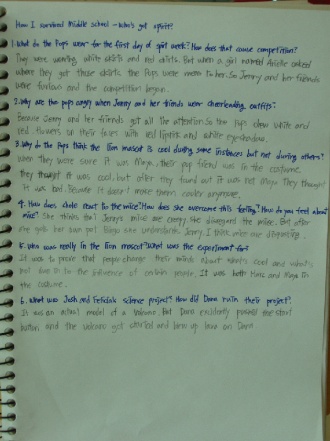 How I survived Middle school - Who's got spirit?
1. What do the Pops wear for the first day of spirit week? How does that cause competition?
They were wearing white skirts and red shirts. But when a girl named Arielle asked
where they got those skirts the Pops were mean to her. So Jenny and her friends
were furious and the competition began.
2. Why are the pops angry when Jenny and her friends wear cheerleading outfits?
Because Jenny and her friends got all the attention. So the pops draw white and
red flowers on their faces with red lipstick and white eyeshadow.
3. Why do the Pops think the lion mascot is cool during some instances but not during others?
When they were sure it was Maya, their pop friend was in the costume.
they thought it was cool, but after they found out it was not Maya They thought
it was bad. Because it didn't make them cooler anymore.
4. How does chole react to the mice? How does she overcome this feeling? How do you feel about
mice? She thinks that Jenny's mice are creepy, she disregard the mice. But after
she gets her own pet Bingo she understands Jenny. I think mice are disgusting.
5. Who was really in the lion mascot? What was the experiment for?
It was to prove that people change their minds about what's cool and what's
not due to the influence of certain people. It was both Hans and Maya in
the costume.
6. What was Josh and Felicia's science project? How did Dana ruin their project?
It was an actual model of a volcano. But Dana excitedly pushed the start
button and the volcano got started and blew up lava on Dana